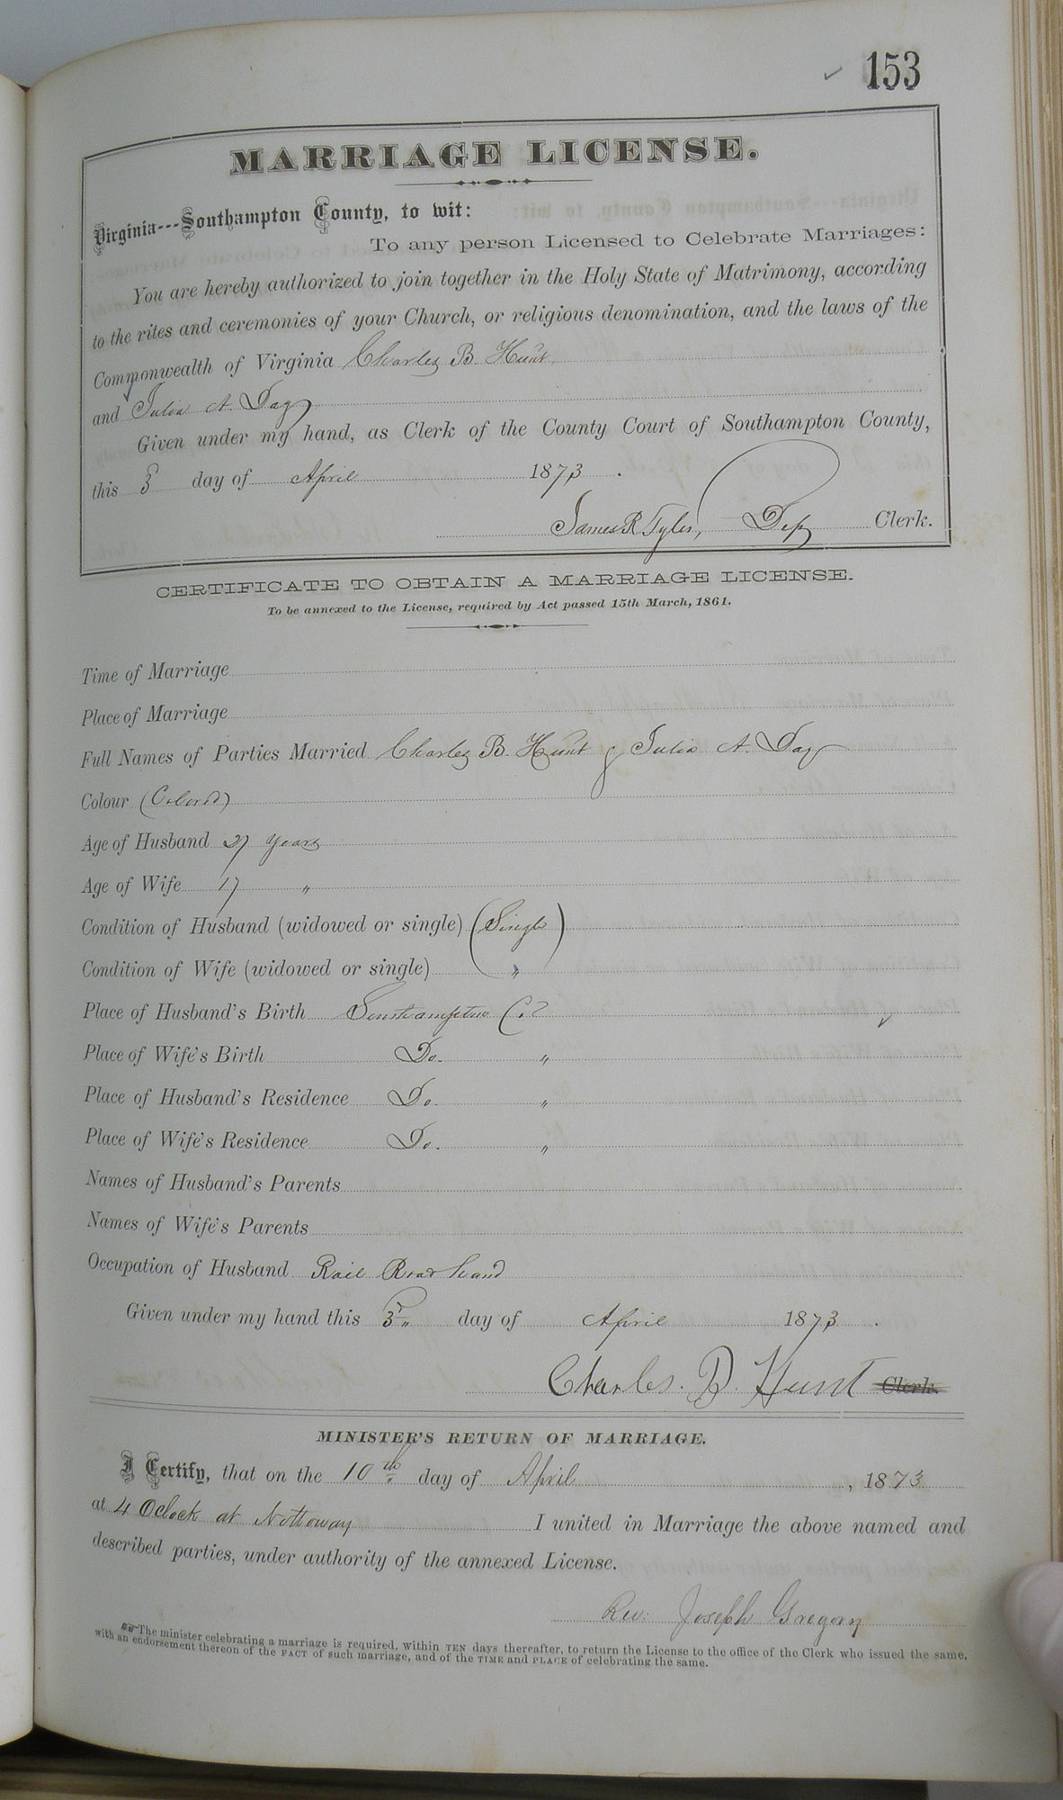 153
MARRIAGE LICENSE.
Virginia---Southampton County, to wit:
To any person Licensed to Celebrate Marriages:
You are hereby authorized to join together in the Holy State of Matrimony, according
to the rites and ceremonies of your Church, or religious denomination, and the laws of the
Commonwealth of Virginia Charles B. Hunt
and Julia A. Day
Given under my hand, as Clerk of the County Court of Southampton County,
this 3 day of April 1873.
James R Tyler, Dep Clerk.
CERTIFICATE TO OBTAIN A MARRIAGE LICENSE.
To be annexed to the License, required by Act passed 15th March, 1861.
Time of Marriage
Place of Marriage
Full Names of Parties Married Charles B. Hunt & Julia A. Day
Colour (Colored)
Age of Husband 27 years
Age of Wife 17 "
Condition of Husband (widowed or single) (Single)
Condition of Wife (widowed or single) "
Place of Husband's Birth Southampton Co
Place of Wife's Birth Do. "
Place of Husband's Residence Do. "
Place of Wife's Residence Do. "
Names of Husband's Parents
Names of Wife's Parents
Occupation of Husband Rail Road hand
Given under my hand this 3" day of April 1873.
Charles. B. Hunt Clerk.
MINISTER'S RETURN OF MARRIAGE.
I Certify, that on the 10th day of April, 1873
at 4 Oclock at Nottoway I united in Marriage the above named and
described parties, under authority of the annexed License.
Rev: Joseph Gregory
The minister celebrating a marriage is required, within TEN days thereafter, to return the License to the office of the Clerk who issued the same,
with an endorsement thereon of the FACT of such marriage, and of the TIME and PLACE of celebrating the same.